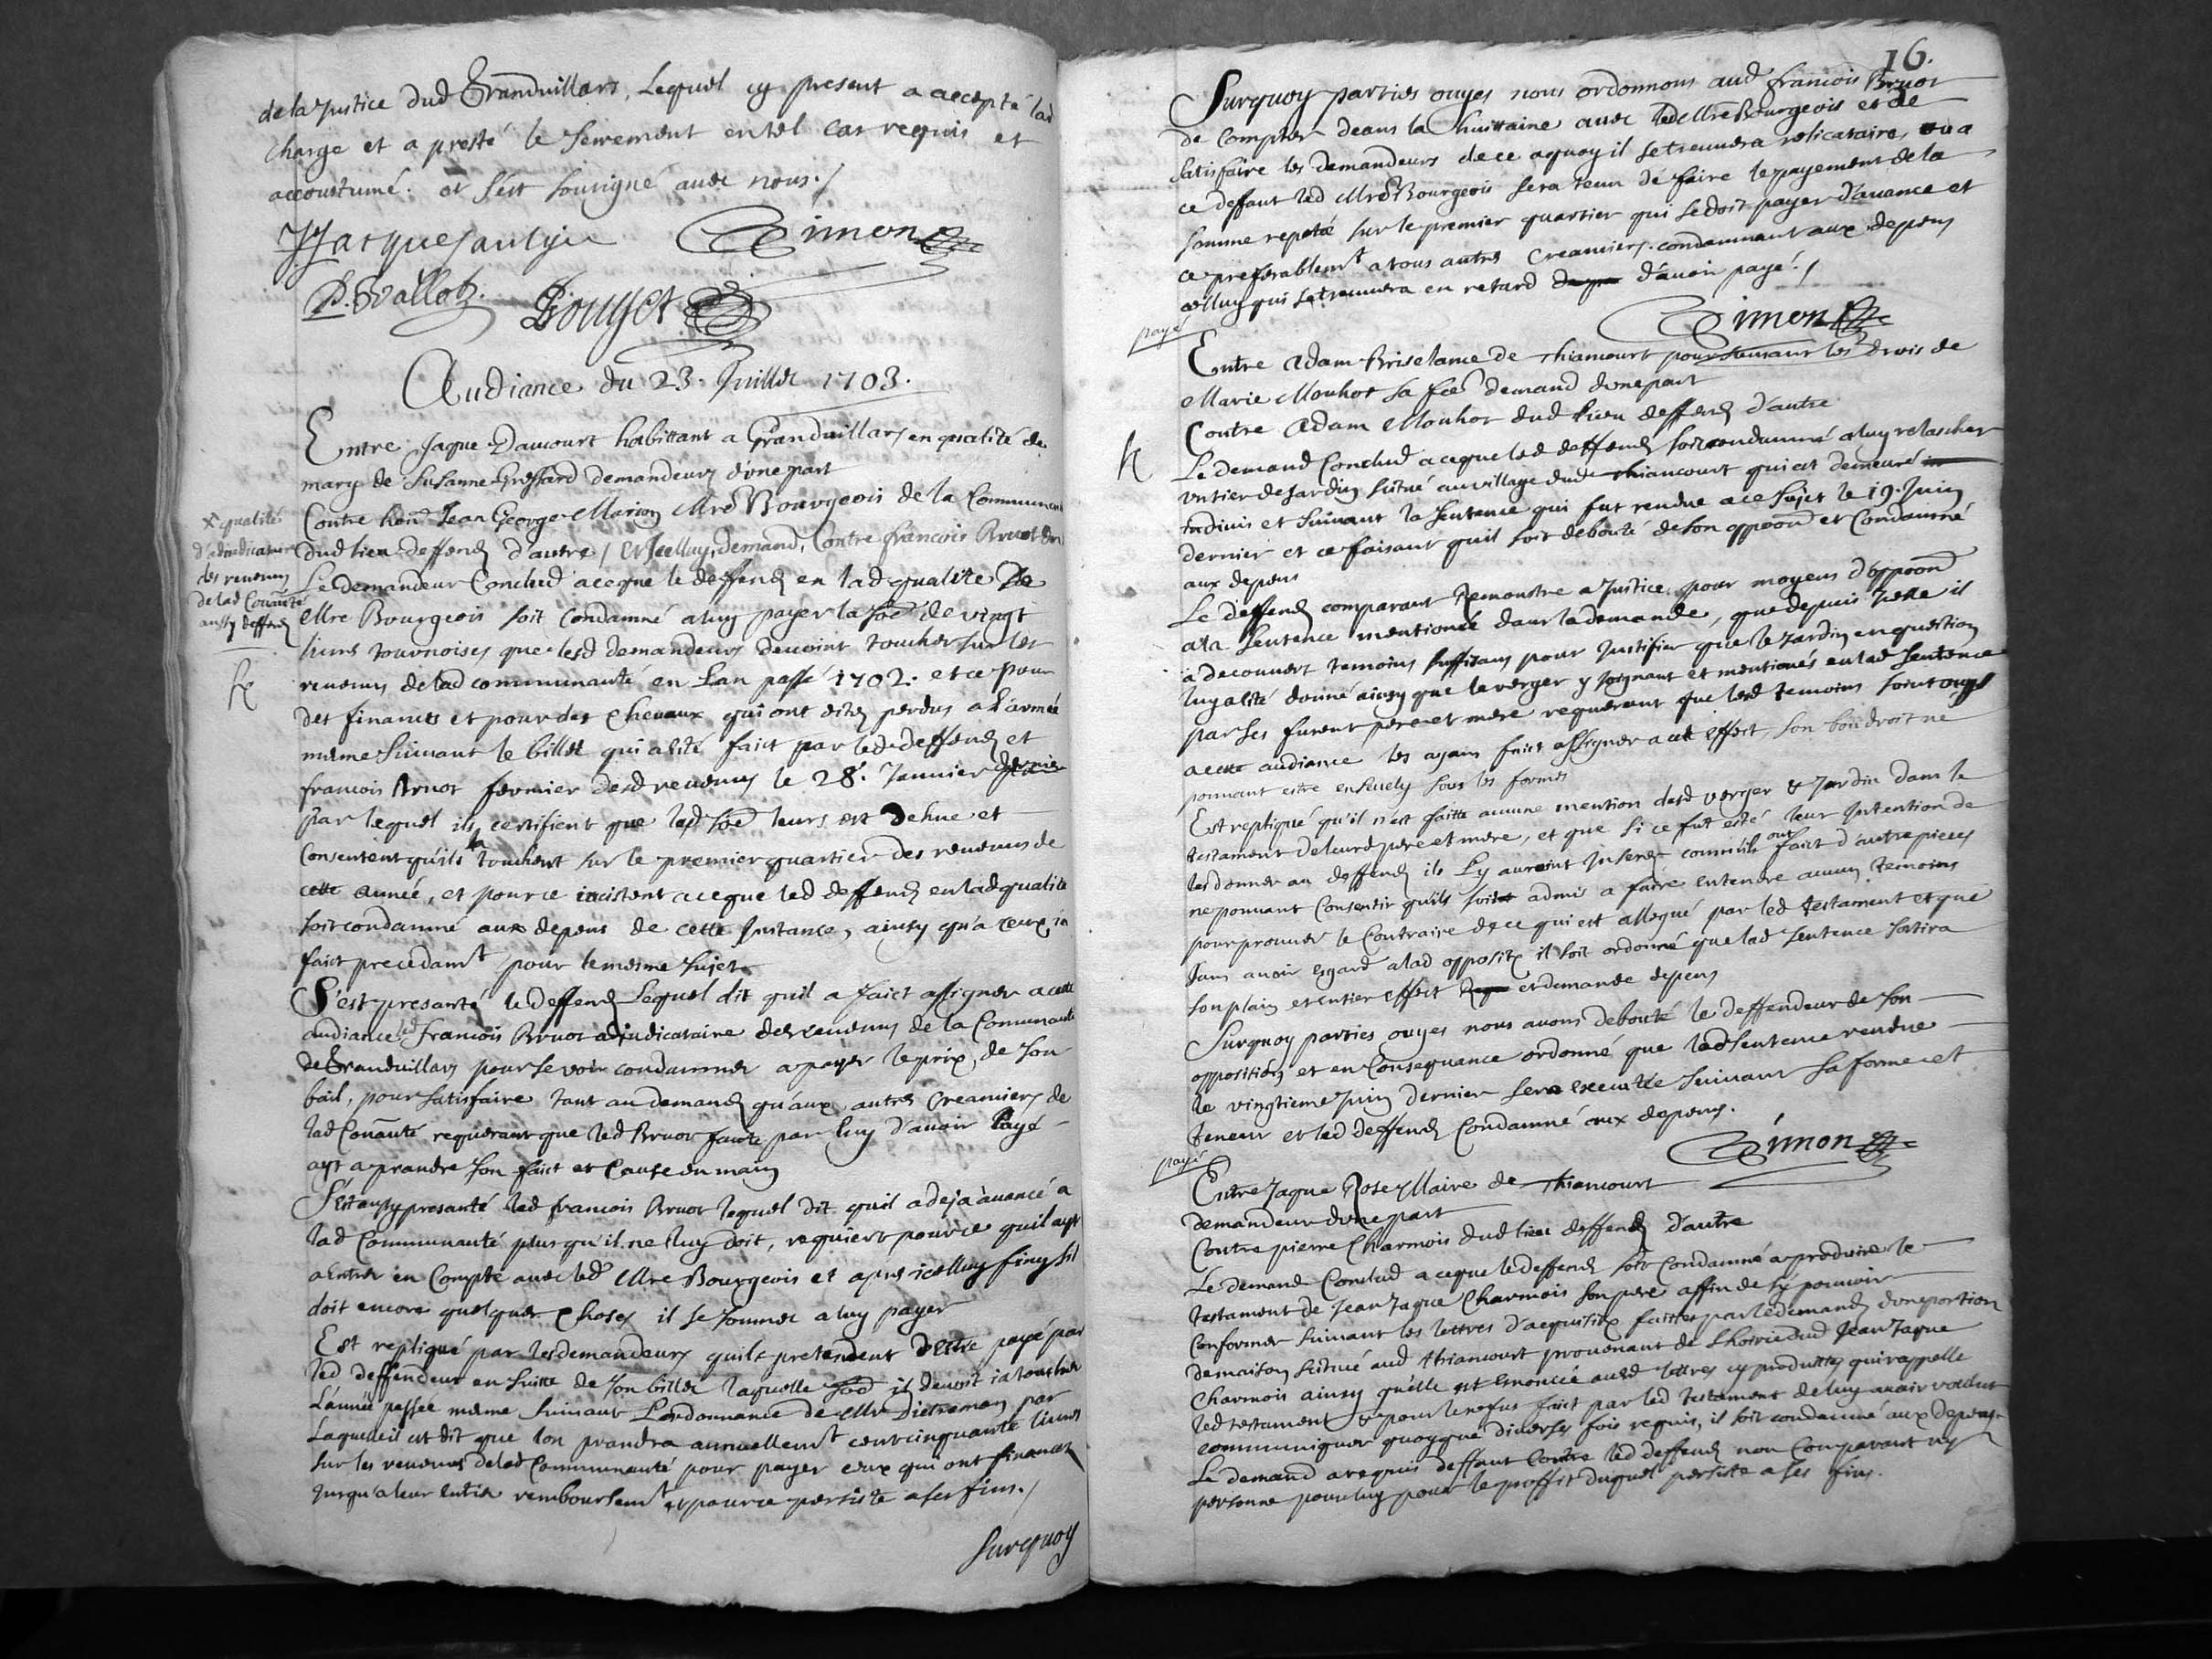 de la Justice dud Grandvillars, Lequel cy present a accepté lad
charge et a presté le serrement en tel cas requis et
accoustumé. et s'est soussigné avec nous./
Simon
Audiance du 23. Juillet 1703.
Entre Jaque Daucourt habittant a Grandvillars en qualité de
mary de Susanne Grossard demandeurs d'une part
Contre hon Jean George Marion Mre Bourgeois de la Communauté
dud lieu deffend d'autre / et Icelluy demand, Contre francois Bruot
x qualité
d'adiudicataire
des revenus
de lad Coūauté
aussy deffend
Le demandeur Conclud a ceque le deffend en lad qualité de
Mre Bourgeois soit Condamné a luy payer la soē de vingt
livres tournoises que lesd demandeurs devoint toucher sur les
revenus de lad communauté en L'an passé 1702. et ce pour
des finances et pour des chevaux qui ont estez perdus a L'armée
mesme suivant le billet qui a esté faict par led deffend et
francois Bruot fermier desd revenus le 28. Janvier dernier
par lequel ils certifient que lad soē leurs est dehue et
Consentent qu'ils la touchent sur le premier quartier des revenus de
cette année, et pource insistent a ceque led deffend en lad qualité
soit condamné aux depens de cette Instance, ainsy qu'a ceux ia
faict precedamt pour le mesme sujet
S'est presanté led deffend Lequel dit quil a faict assigner a cette
audiance led francois Bruot adiudicataire des revenus de la Comunauté
de Grandvillars pour se voir condamner a payer le prix de son
bail, pour satisfaire tant au demand qu'aux autres creanciers de
lad Coūauté requerant que led Bruot faute par luy d'avoir payé
ayt a prandre son faict et Cause en main
S'est aussy presanté led francois Bruot lequel dit quil a deja avancé a
lad Communauté plus qu'il ne luy doit, requiert pource quil ayt
a Entrer en Compte avec led Mre Bourgeois et apres icelluy finy sil
doit encore quelques choses il se soumet a luy payer
Est repliqué par les demandeurs quils pretendent d'estre payé par
led deffendeur en suitte de son billet laquelle soē il devoit ia toucher
L'année passée mesme suivant L'ordonnance de Mr Dietreman par
Laquelle il est dit que lon prandra annuellemt cent cinquante livres
sur les revenus de lad Communauté pour payer ceux qui ont financez
jusqu'a leur Entier remboursemt et pource persiste a ses fins./
Surquoy
16.
Surquoy parties ouyes nous ordonnons aud francois Bruot
de Compter deans la huittaine avec led Mre Bourgeois et de
satisfaire les demandeurs de ce aquoy il se treuvera relicataire, ou a
ce deffaut led Mre Bourgeois sera tenu de faire le payement de la
somme repetée sur le premier quartier qui se doit payer d'avance et
ce preferablemt a tous autres Creanciers. condamnant aux depens
celluy qui se treuvera en retard d'avoir payé./
Simon
payé
Entre Adam Briselance de Thiancourt poursuivant les drois de
Marie Mouhot sa feē demand d'une part
Contre Adam Mouhot dud lieu deffend d'autre
Le demand Conclud a ceque led deffend soit condamné a luy relascher
un tier de Jardin scitué au village dud Thiancourt qui est demeuré
indivis et suivant la sentence qui fut rendue a ce sujet le 19. Juin
dernier et ce faisant quil soit debouté de son oppoōn et Condamné
aux depens
Le deffend comparant Remonstre a Justice pour moyens d'oppoōn
a la sentence mentionée dans la demande, que depuis Icelle il
a decouvert temoins suffisans pour Justifier que le Jardin en question
luy a esté donné ainsy que le verger y Joignant et mentionés en lad sentence
par ses furent pere et mere requerant que lesd temoins soint ouys
a cette audiance les ayans faict assigner a cett effect, son bon droit ne
pouvant estre ensevely sous les formes
Est repliqué qu'il n'est faitte aucune mention desd verger & Jardin dans le
testament de leurd pere et mere, et que si ce fut esté leur Intention de
les donner au deffend ils Ly auroint Inserez comme ils ont faict d'autre pieces
ne pouvant Consentir qu'ils soit admis a faire entendre aucuns temoins
pour prouver le Contraire de ce qui est allegué par led testament et que
sans avoir esgard a lad opposite il soit ordonné que lad sentence sortira
son plain et Entier effect et demande depens
Surquoy parties ouyes nous avons debouté le deffendeur de son
opposition et en Consequance ordonné que lad sentence rendue
le vingtieme Juin dernier sera executée suivant sa forme et
teneur et led deffend Condamné aux depens.
Simon
payé
Entre Jaque Rose Maire de Thiancourt
demandeur d'une part
Contre pierre Charmois dud lieu deffend d'autre
Le demand Conclud a ceque le deffend soit Condamné a produire le
testament de Jean Jaque Charmois son pere affin de s'y pouvoir
Conformer suivant les lettres d'acquisite faittes par le demand d'une portion
de maison scitué aud thiancourt provenant de L'hoirie dud Jean Jaque
Charmois ainsy qu'elle est Enoncée aud lettres cy produittes qui rappelle
led testament & pour le refus faict par led testament de luy avoir voulut
communiquer quoyque diverses fois requis, il soit condamné aux depens
Le demand a requis deffaut Contre led deffend non Comparant ny
personne pour luy pour le proffit duquel persiste a ses fins.